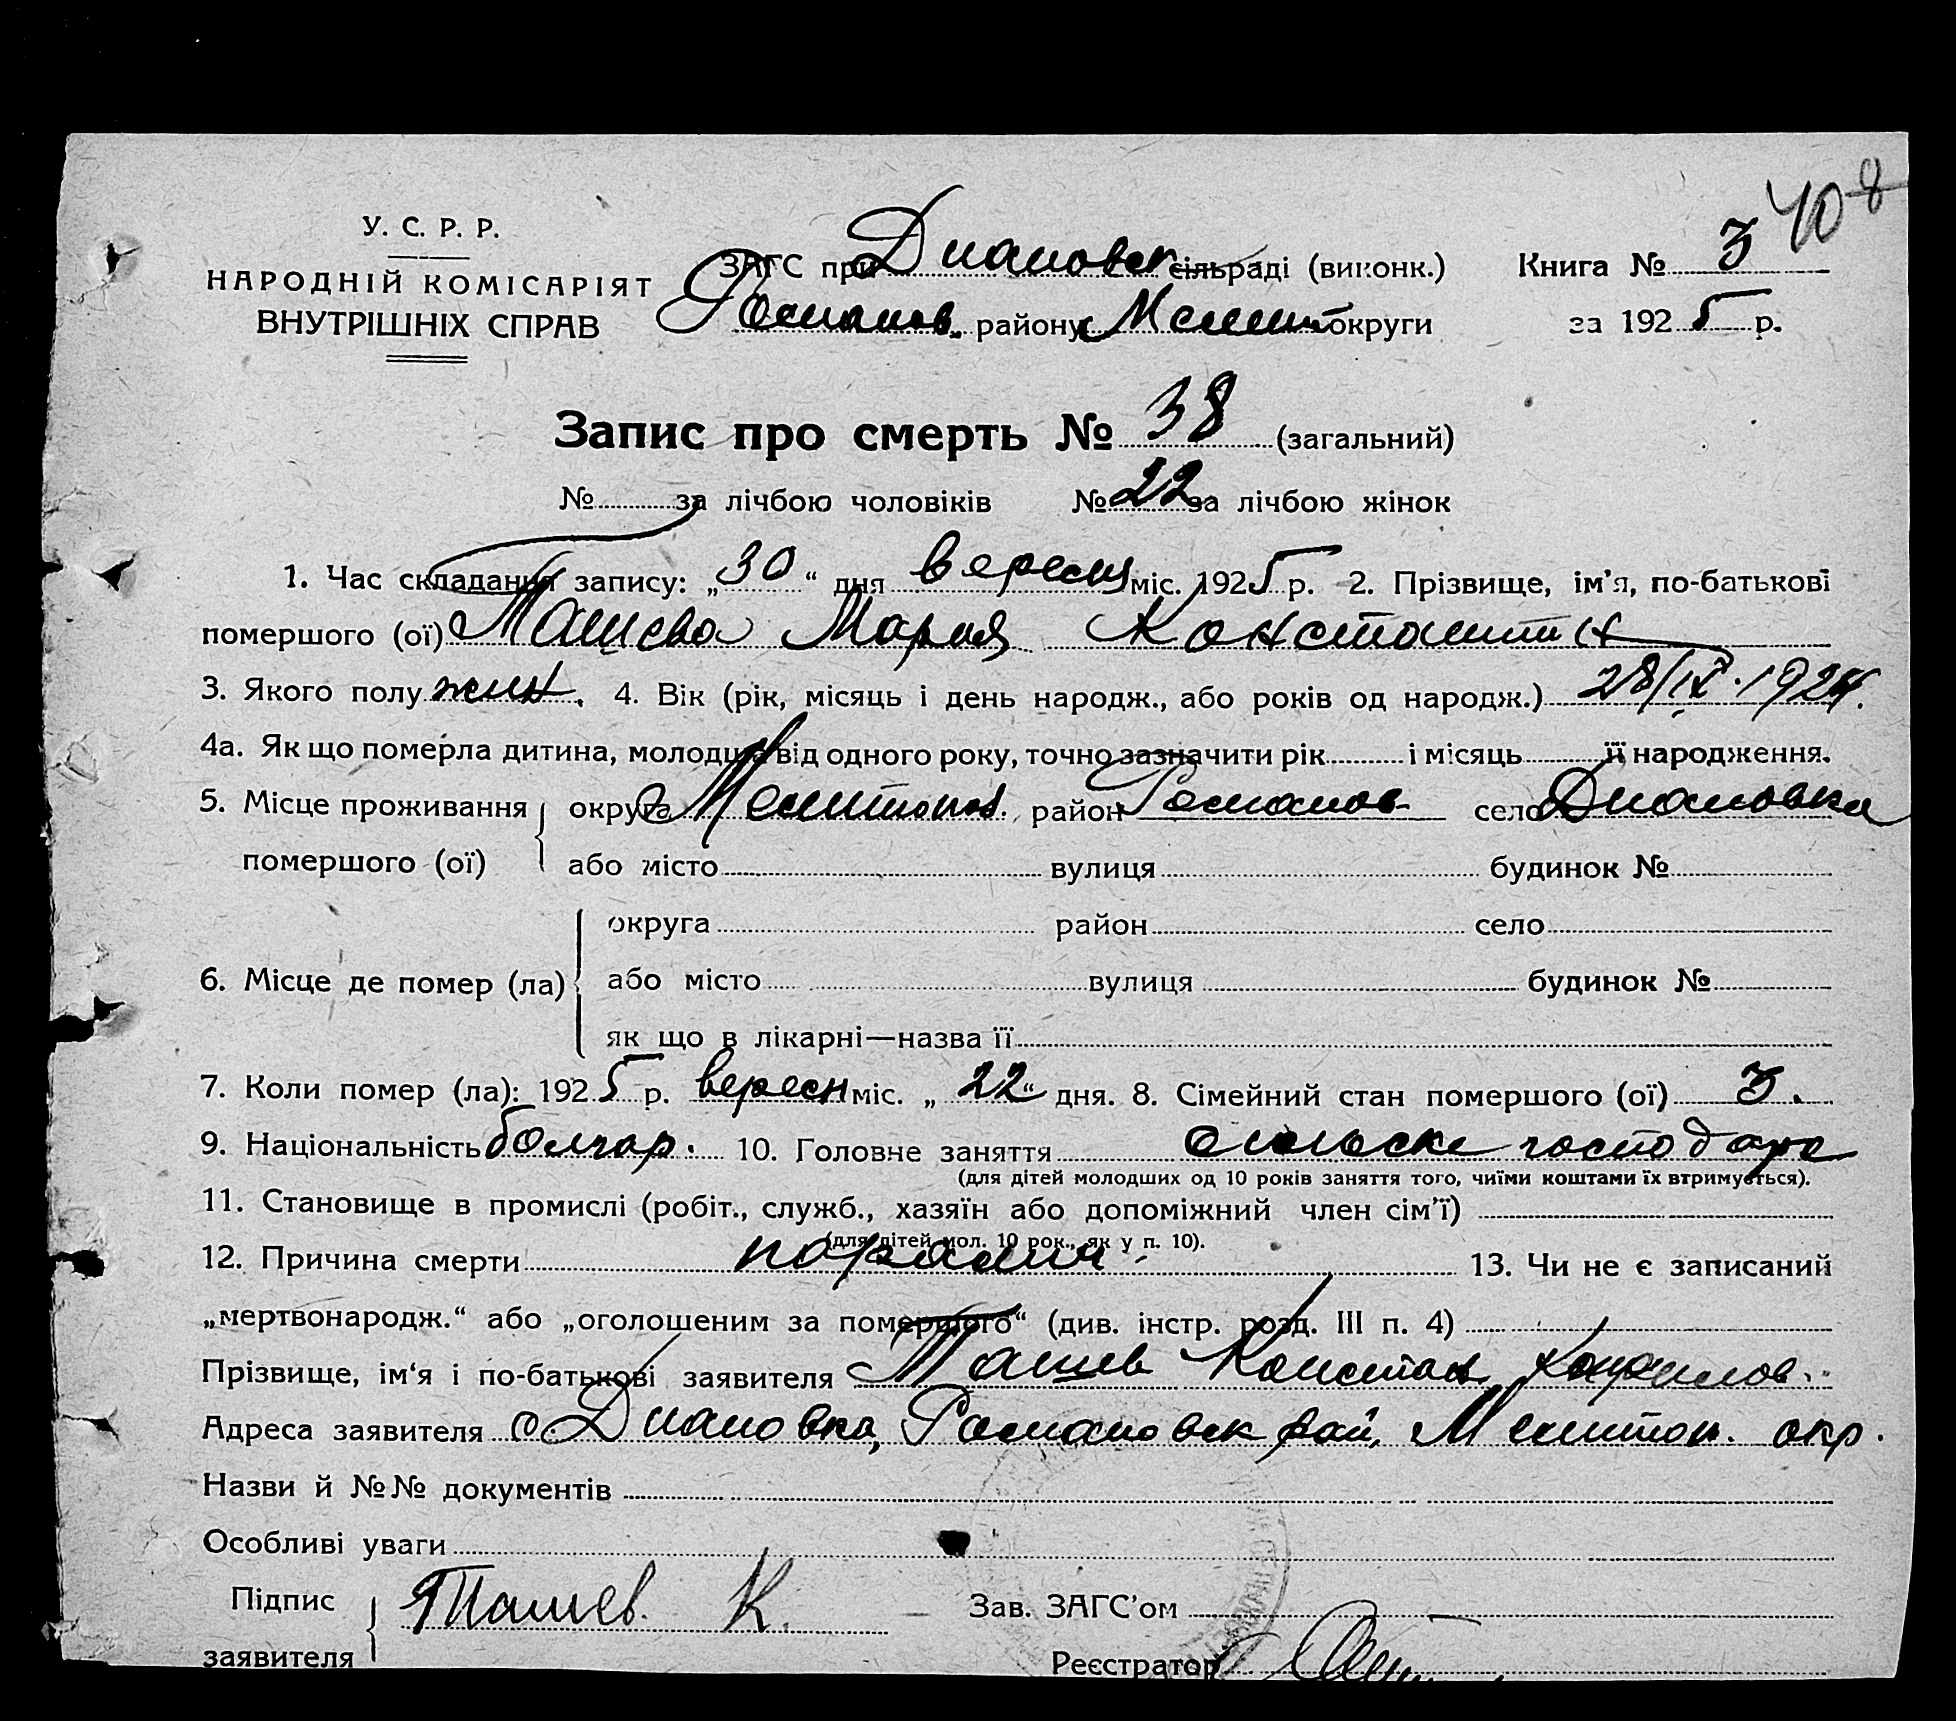 40 8
У. С. Р. Р.
НАРОДНІЙ КОМІСАРІЯТ
ВНУТРІШНІХ СПРАВ
ЗАГС при Диановск сільраді (виконк.)
Романов. району Мелит округи
Книга № 3
за 1925 р.
Запис про смерть № 38 (загальний)
№ за лічбою чоловіків № 22 за лічбою жінок
1. Час складання запису: „30“ дня вересн міс. 1925 р. 2. Прізвище, ім'я, по-батькові
помершого (ої) Ташева Мария Константин
3. Якого полу жин. 4. Вік (рік, місяць і день народж., або років од народж.) 28/IX.1924.
4а. Як що померла дитина, молодша від одного року, точно зазначити рік і місяць її народження.
5. Місце проживання округа Мелитопол. район Романов село Диановка
помершого (ої) або місто вулиця будинок №
округа район село
6. Місце де помер (ла) або місто вулиця будинок №
як що в лікарні—назва її
7. Коли помер (ла): 1925 р. вересн міс. „22“ дня. 8. Сімейний стан помершого (ої) 3.
9. Національність болгар. 10. Головне заняття сильске господарс
(для дітей молодших од 10 років заняття того, чиїми коштами їх втримується).
11. Становище в промислі (робіт., служб., хазяїн або допоміжний член сім'ї)
(для дітей мол. 10 рок., як у п. 10).
12. Причина смерти паралич. 13. Чи не є записаний
„мертвонародж.“ або „оголошеним за померлого“ (див. інстр. розд. III п. 4)
Прізвище, ім'я і по-батькові заявителя Ташев Констан
Адреса заявителя с. Диановка, Романовск рай, Мелитоп. окр.
Назви й №№ документів
Особливі уваги
Підпис Ташев. К. Зав. ЗАГС'ом
заявителя Реєстратор